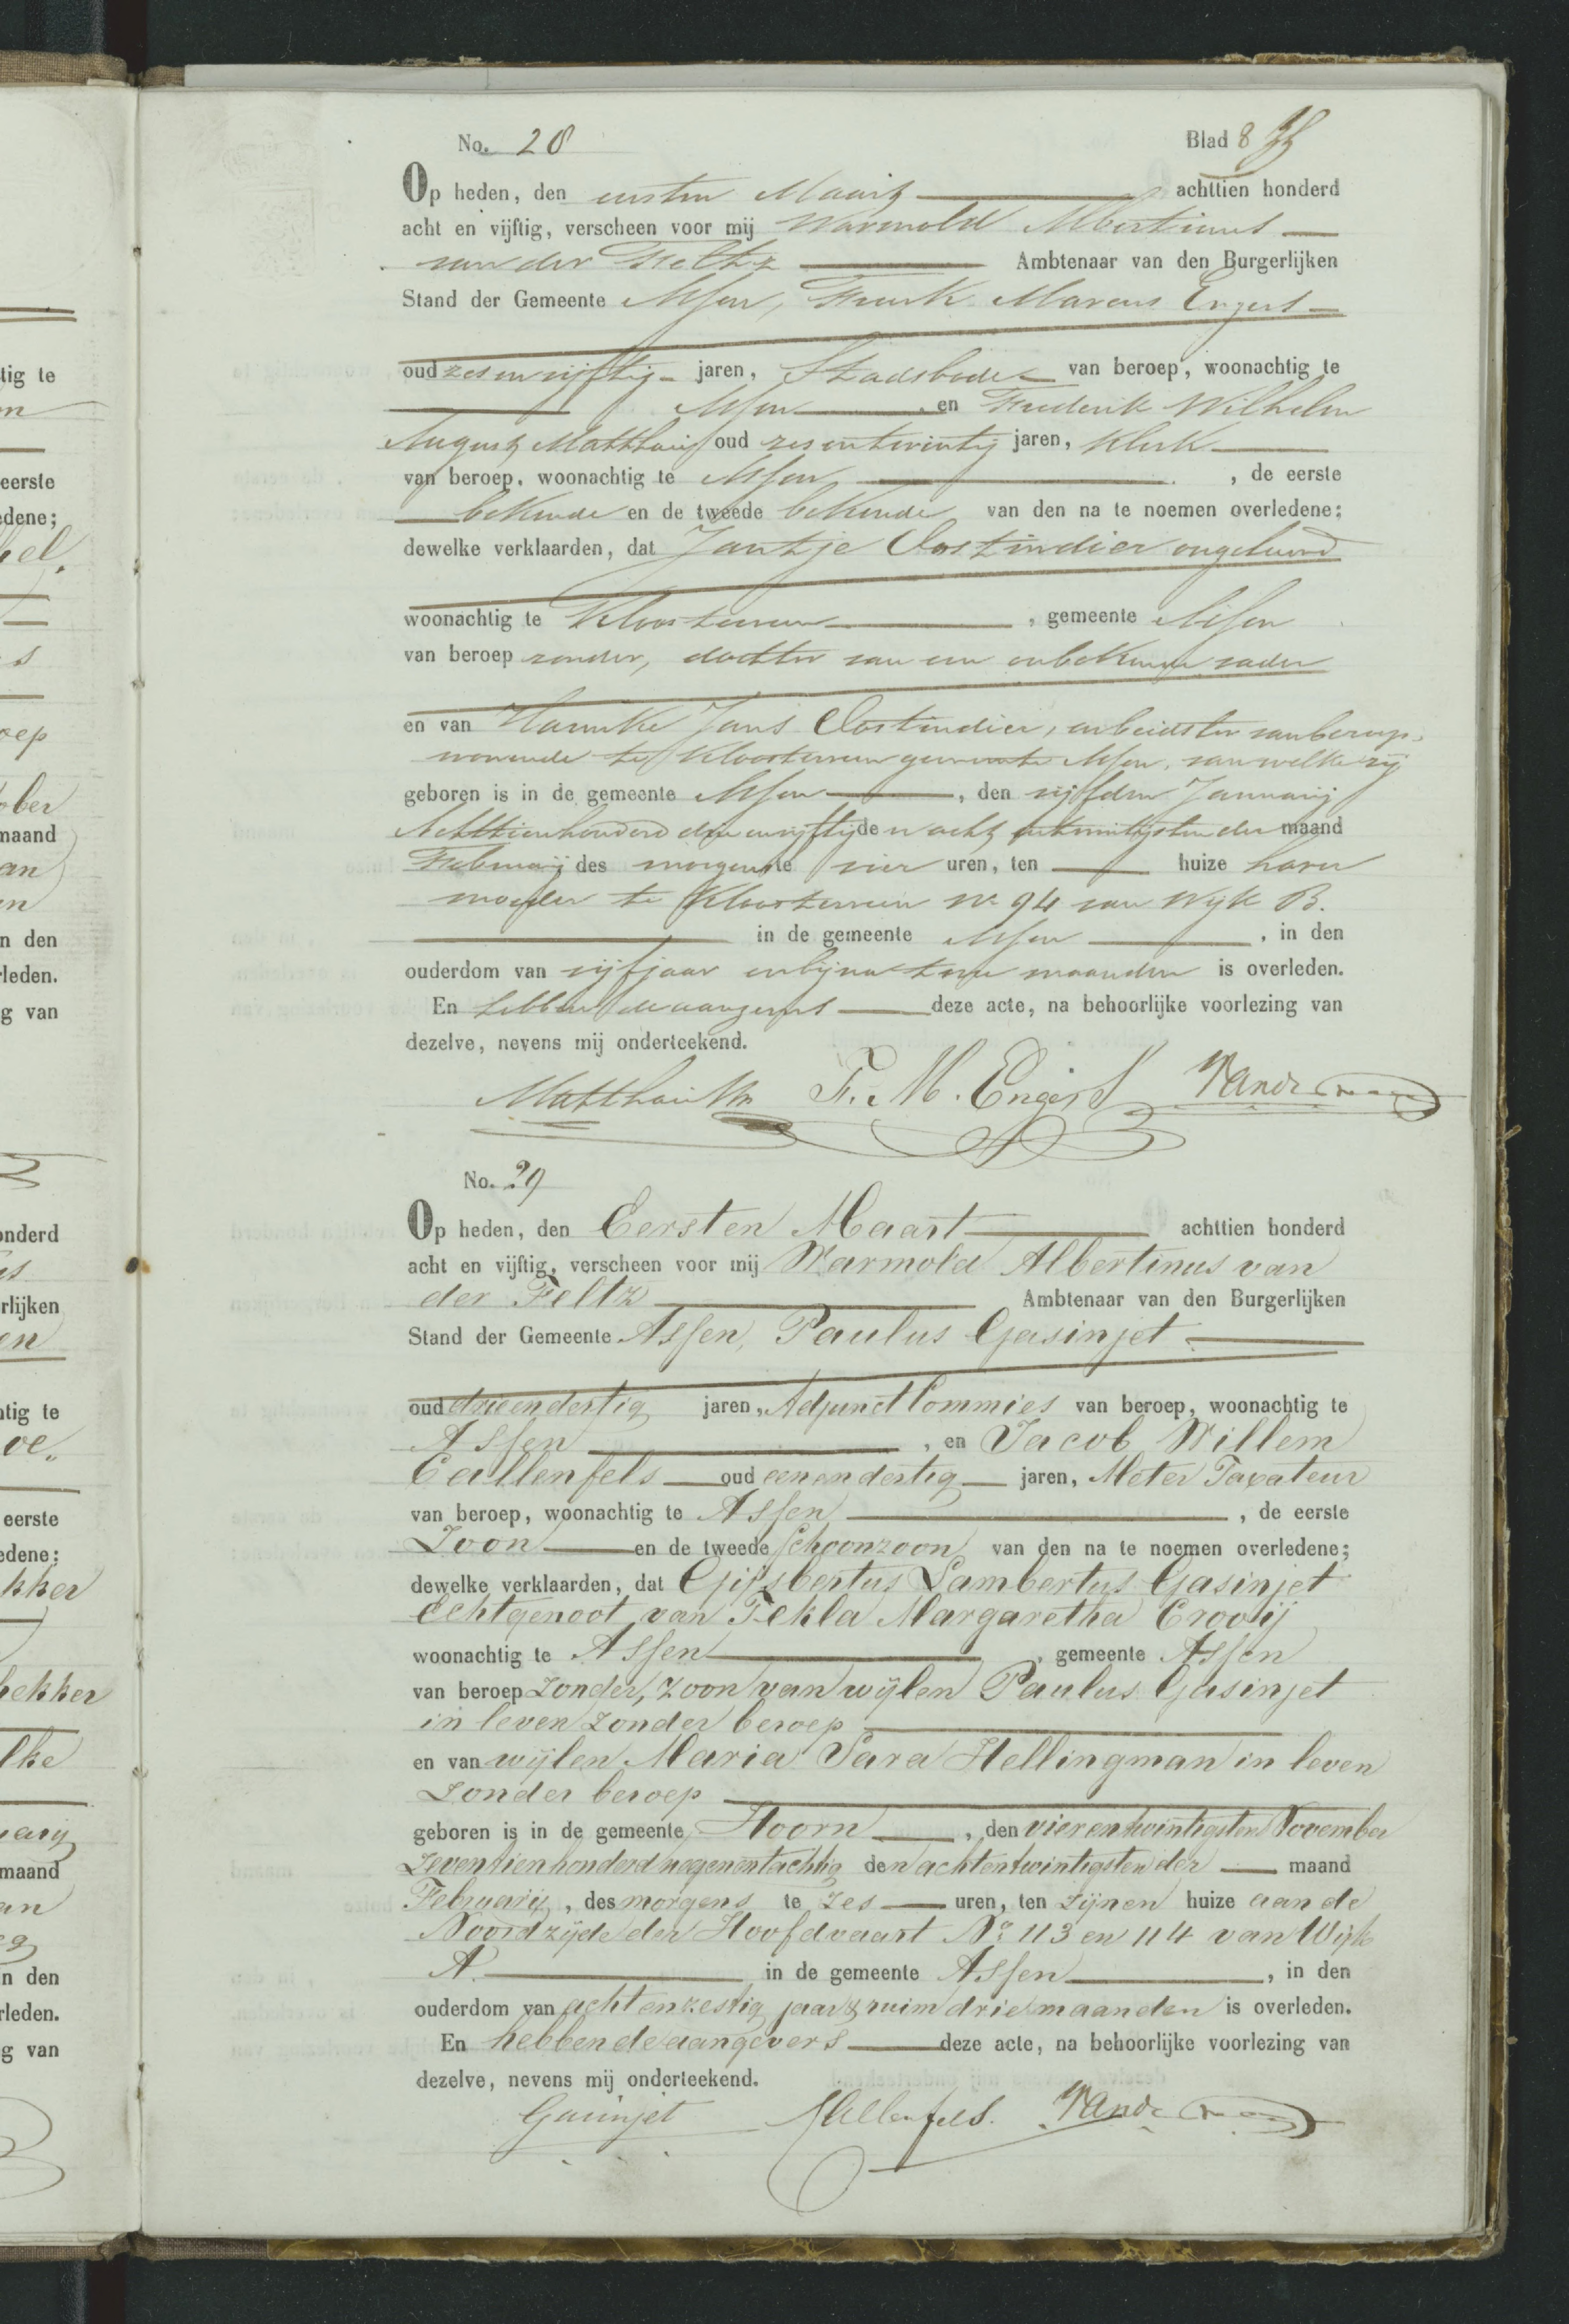 No. 28 Blad 8
Op heden, den eersten Maart achttien honderd
acht en vijftig, verscheen voor mij Warmold Albertinus
van der Feltz Ambtenaar van den Burgerlijken
Stand der Gemeente Assen, Freerk Marcus Engers
oud zes en vijftig jaren, Stadsbode van beroep, woonachtig te
Assen en Frederik Wilhelm
August Matthaei oud zes en twintig jaren, Klerk
van beroep, woonachtig te Assen, de eerste
bekende en de tweede bekende van den na te noemen overledene;
dewelke verklaarden, dat Jantje Oostindier ongehuwd
woonachtig te Kloosterveen, gemeente Assen
van beroep zonder, dochter van een onbekende vader
en van Hannike Jans Oostindier, arbeidster van beroep,
wonende te Kloosterveen gemeente Assen, van welke zij
geboren is in de gemeente Assen, den vijfden Januarij
Achttienhonderd drie en vijftig den acht en twintigsten der maand
Februarij des morgens te vier uren, ten huize harer
moeder te Kloosterveen No 94 van Wijk B.
in de gemeente Assen, in den
ouderdom van vijf jaar en bijna twee maanden is overleden.
En hebben de aangevers deze acte, na behoorlijke voorlezing van
dezelve, nevens mij onderteekend.
F. M. Engers
No. 29
Op heden, den Eersten Maart achttien honderd
acht en vijftig, verscheen voor mij Warmold Albertinus van
der Feltz Ambtenaar van den Burgerlijken
Stand der Gemeente Assen, Paulus Gasinjet
oud drie en dertig jaren, Adjunct Commies van beroep, woonachtig te
Assen, en Jacob Willem
Callenfels oud een en dertig jaren, Meter Taxateur
van beroep, woonachtig te Assen, de eerste
Zoon en de tweede Schoonzoon van den na te noemen overledene;
dewelke verklaarden, dat Gijsbertus Lambertus Gasinjet
echtgenoot van Tekla Margaretha Crooij
woonachtig te Assen, gemeente Assen
van beroep zonder, zoon van wijlen Paulus Gasinjet
in leven zonder beroep
en van wijlen Maria Sara Hellingman in leven
zonder beroep
geboren is in de gemeente Hoorn, den vier en twintigsten November
Zeventienhonderd negenentachtig den achtentwintigsten der maand
Februarij, des morgens te zes uren, ten zijnen huize aan de
Noordzijde der Hoofdvaart No 113 en 114 van Wijk
A. in de gemeente Assen, in den
ouderdom van achtenzestig jaar & ruim drie maanden is overleden.
En hebben de aangevers deze acte, na behoorlijke voorlezing van
dezelve, nevens mij onderteekend.
Gasinjet Callenfels.